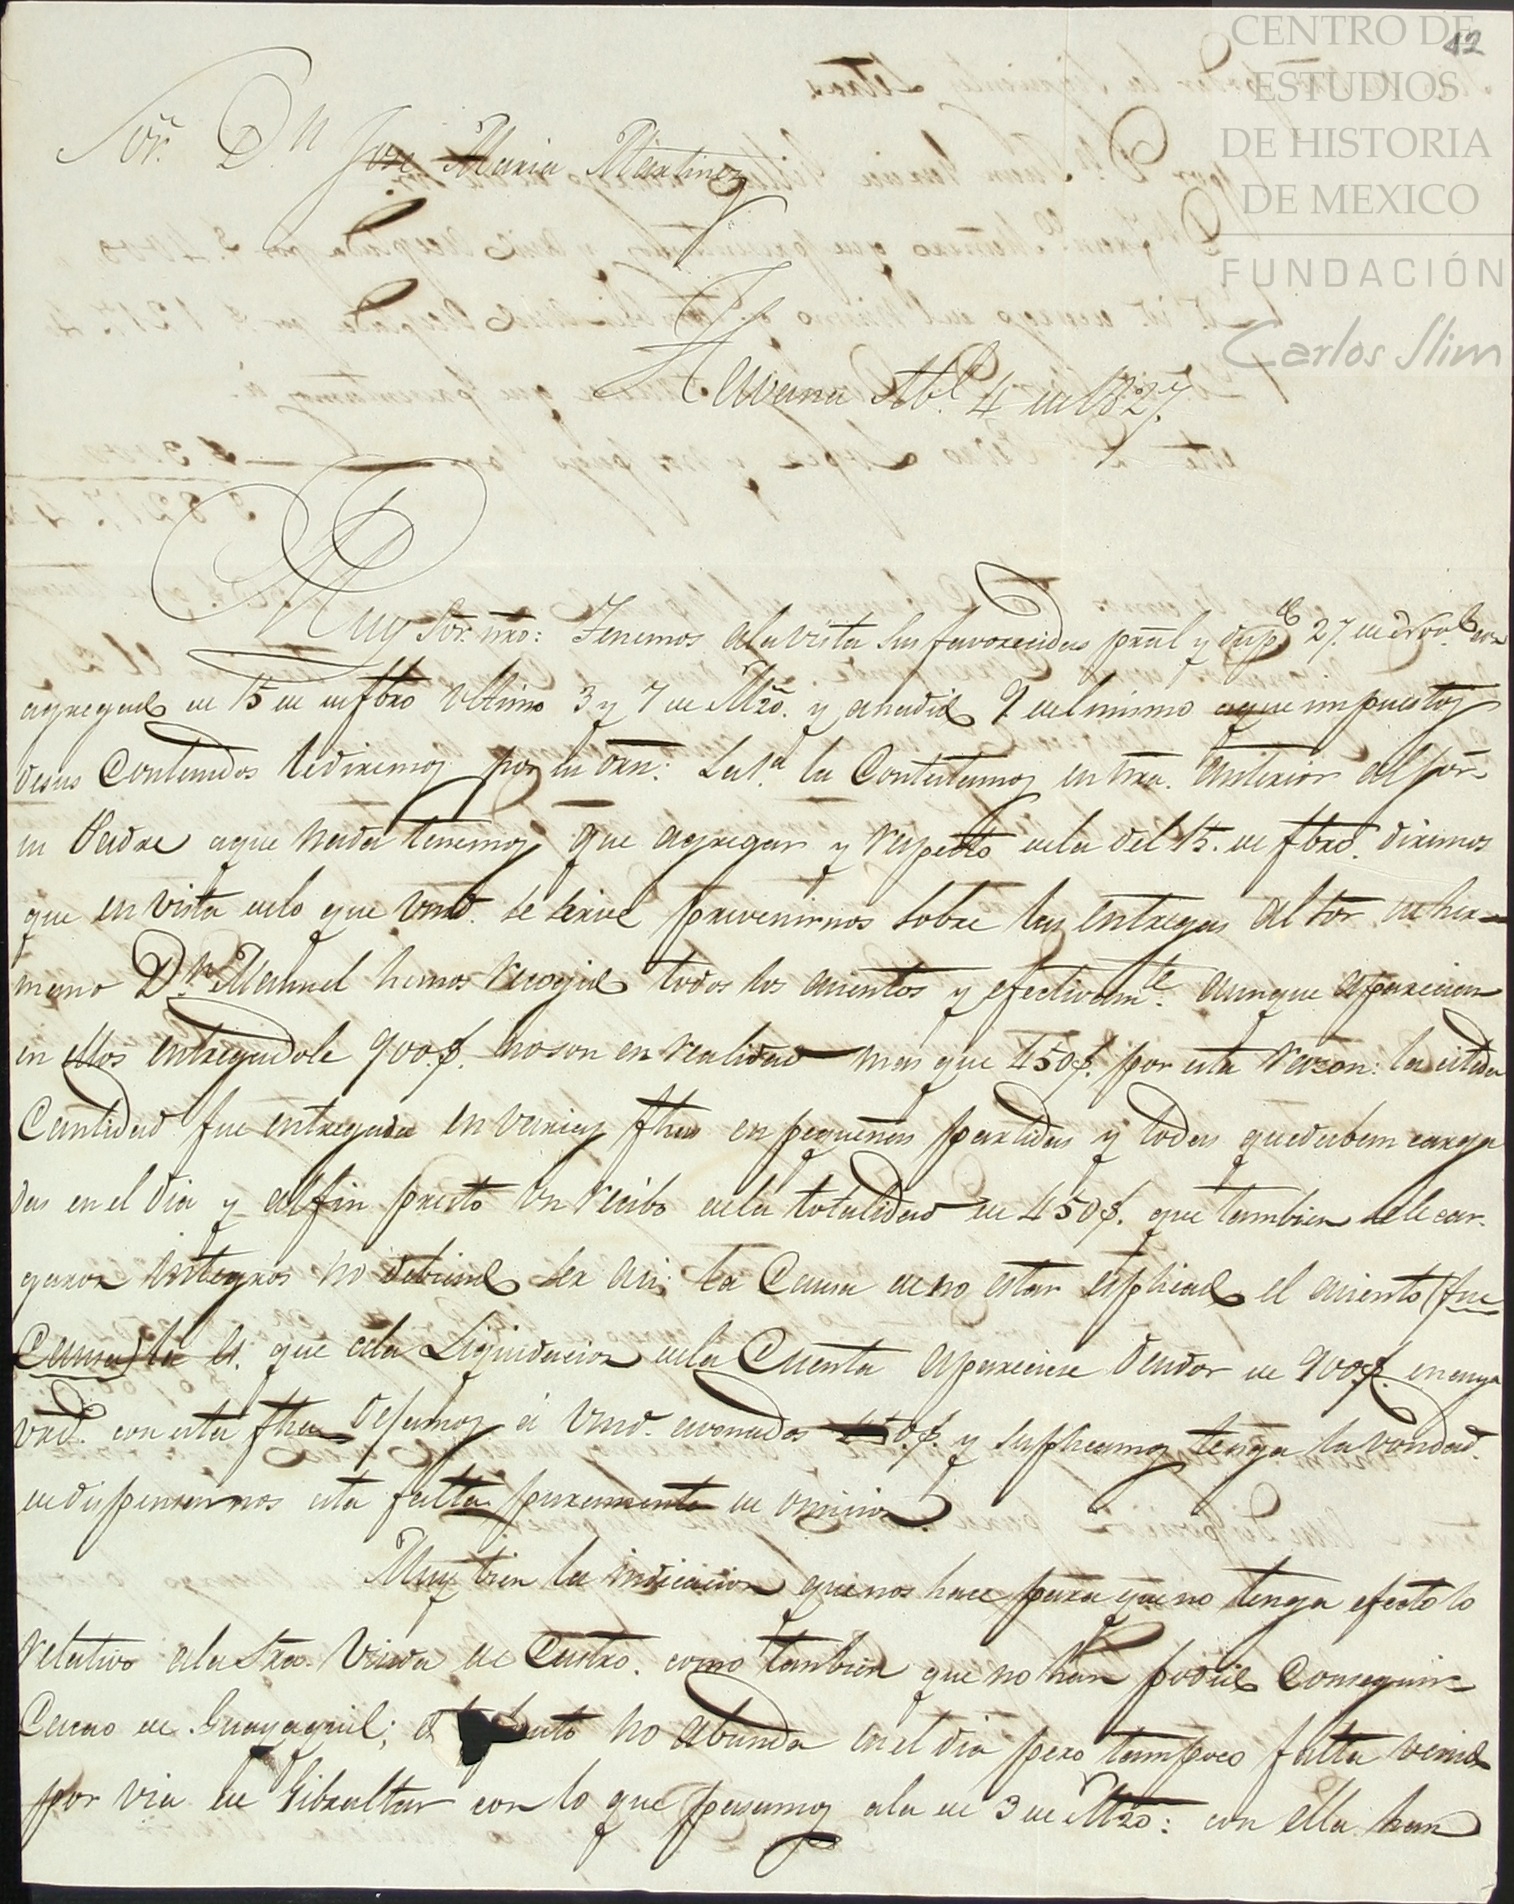 CENTRO DE
ESTUDIOS
DE HISTORIA
DE MEXICO
FUNDACIÓN
Carlos Slim
12
Sor. Dn Jose Maria Martinez
Havana 4 de 1827.
Muy Sor. nro: Tenemos ala vista sus favorecidas pral y dup 27. de
agregado de 15 de febro ultimo 3 y 7 de Mzo. y añadido 9 del mismo aque impuestos
desus Contenidos lediremos por su orn: La 1a la Contestamos en nra. anterior al Sor
su Padre aque nada tenemos que agregar y respecto dela del 15. de fbro. diremos
que en vista delo que Vmd. se sirve prevenirnos sobre las entregas al Sor su her-
mano Dn Manuel hemos recogido todos los asientos y efectivamte. aunque aparecian
en ellos entregadole 900$. noson en realidad mas que 450$. por esta razon: la citada
Cantidad fue entregada en varias fhas en pequeñas partidas y todas quedaban carga
das en el dia y alfin presto un recibo dela totalidad de 450$. que tambien sele car-
garon integros no debiendo ser asi; la Causa deno estar esplicado el asiento (fue
Causa) la es. que ala Liquidacion dela Cuenta apareciese deudor de 900$. encuya
vrd. con esta fha Dejamos á Vmd. avonados 450.$. y suplicamos tenga la vondad.
de dispensarnos esta falta puramente de omision
Muy bien la indicacion quenos hace para queno tenga efecto lo
relativo ala Sra. Viuda de Castro. como tanbien que no han podido Conseguir
Cacao de Guayaquil; no abunda en el dia pero tampoco falta venido
por via de Gibraltar con lo que pasamos ala de 3 de Mzo: con ella han